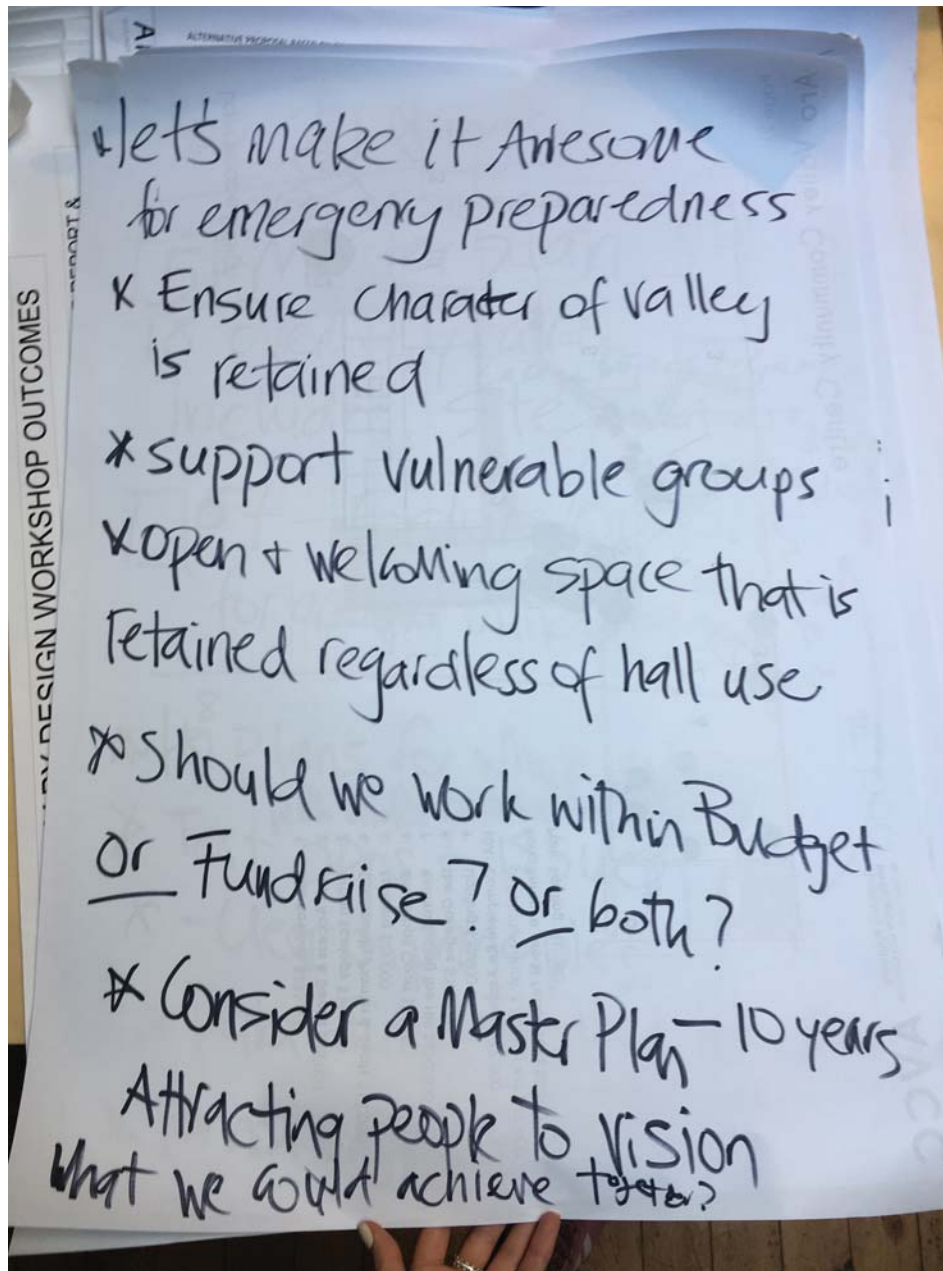 *let's make it Awesome
for emergency preparedness
* Ensure Charater of valley
is retained
* support vulnerable groups
* open + welcoming space that is
retained regardless of hall use
* Should we work within Budget
or Fundraise? or both?
* Consider a Master Plan – 10 years
Attracting people to vision
What we could achieve together?
DESIGN WORKSHOP OUTCOMES
REPORT &